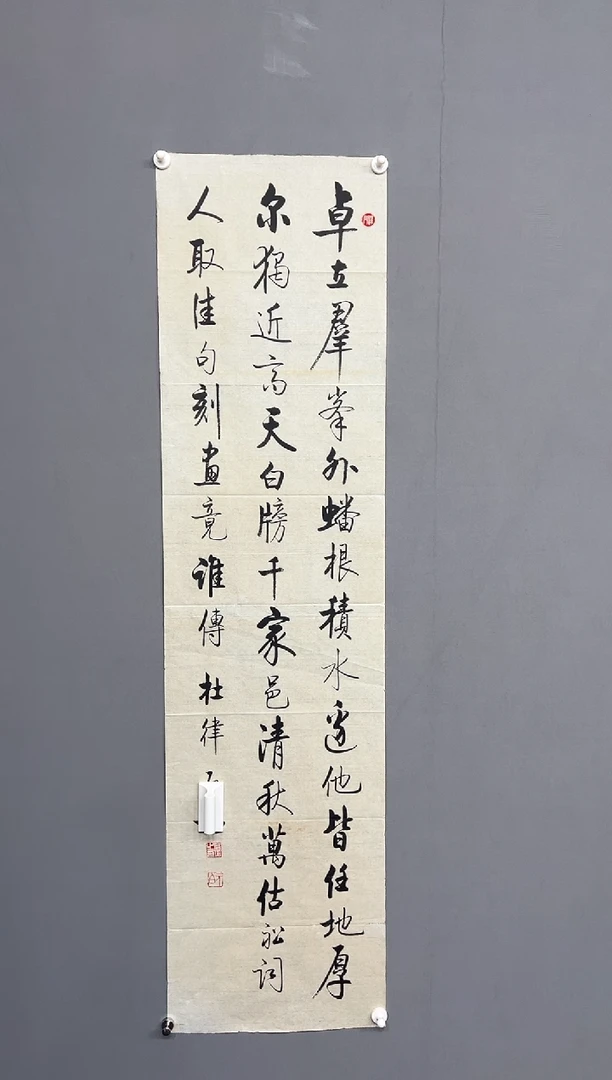 卓立羣峯外蟠根積水邊他皆任地厚
尔獨近高天白牓千家邑清秋萬估船詞
人取佳句刻畫竟誰傳 杜律